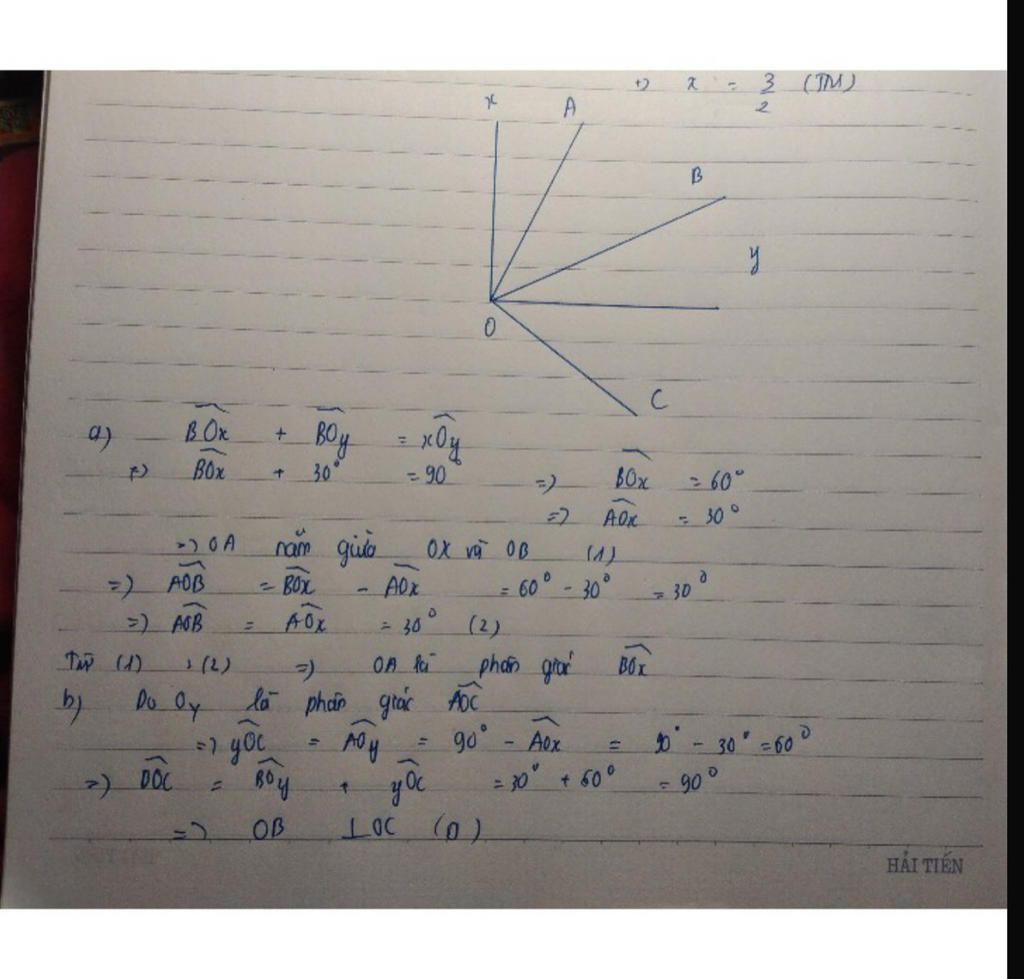 ⇔ x = 3/2 (TM)
x A
B
y
O
C
a) BOx + BOy = xOy
⇔ BOx + 30° = 90° => BOx = 60°
=> AOx = 30°
=> OA nằm giữa OX và OB (1)
=> AOB = BOx - AOx = 60° - 30° = 30°
=> AOB = AOx = 30° (2)
Từ (1), (2) => OA là phân giác BOx
b) Do Oy là phân giác AOC
=> yOC = AOy = 90° - AOx = 90° - 30° = 60°
=> BOC = BOy + yOC = 30° + 60° = 90°
=> OB ⊥ OC
HẢI TIẾN